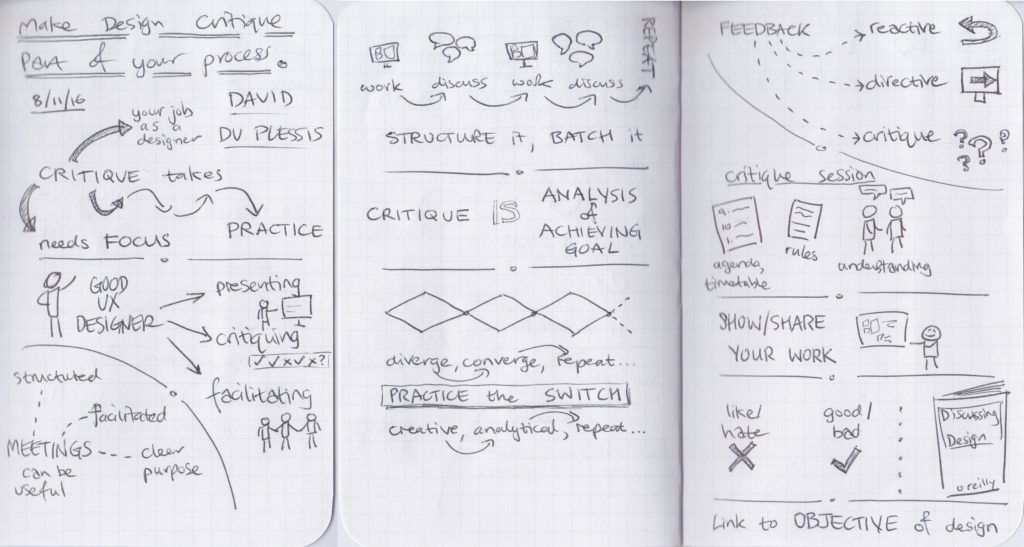 Make Design Critique
Part of your process.
8/11/16
DAVID
DU PLESSIS
your job
as a
designer
CRITIQUE takes
PRACTICE
needs FOCUS
GOOD
UX
DESIGNER
presenting
critiquing
√√x√x?
facilitating
structured
facilitated
MEETINGS
can be
useful
clear
purpose
work discuss work discuss
REPEAT
STRUCTURE it, BATCH it
CRITIQUE IS
ANALYSIS
of
ACHIEVING
GOAL
diverge, converge, repeat...
PRACTICE the SWITCH
creative, analytical, repeat...
FEEDBACK
reactive
directive
critique
? ? ? ?
critique session
agenda,
timetable
rules
understanding
SHOW/SHARE
YOUR WORK
like/
hate
good/
bad
Discussing
Design
oreilly
Link to OBJECTIVE of design